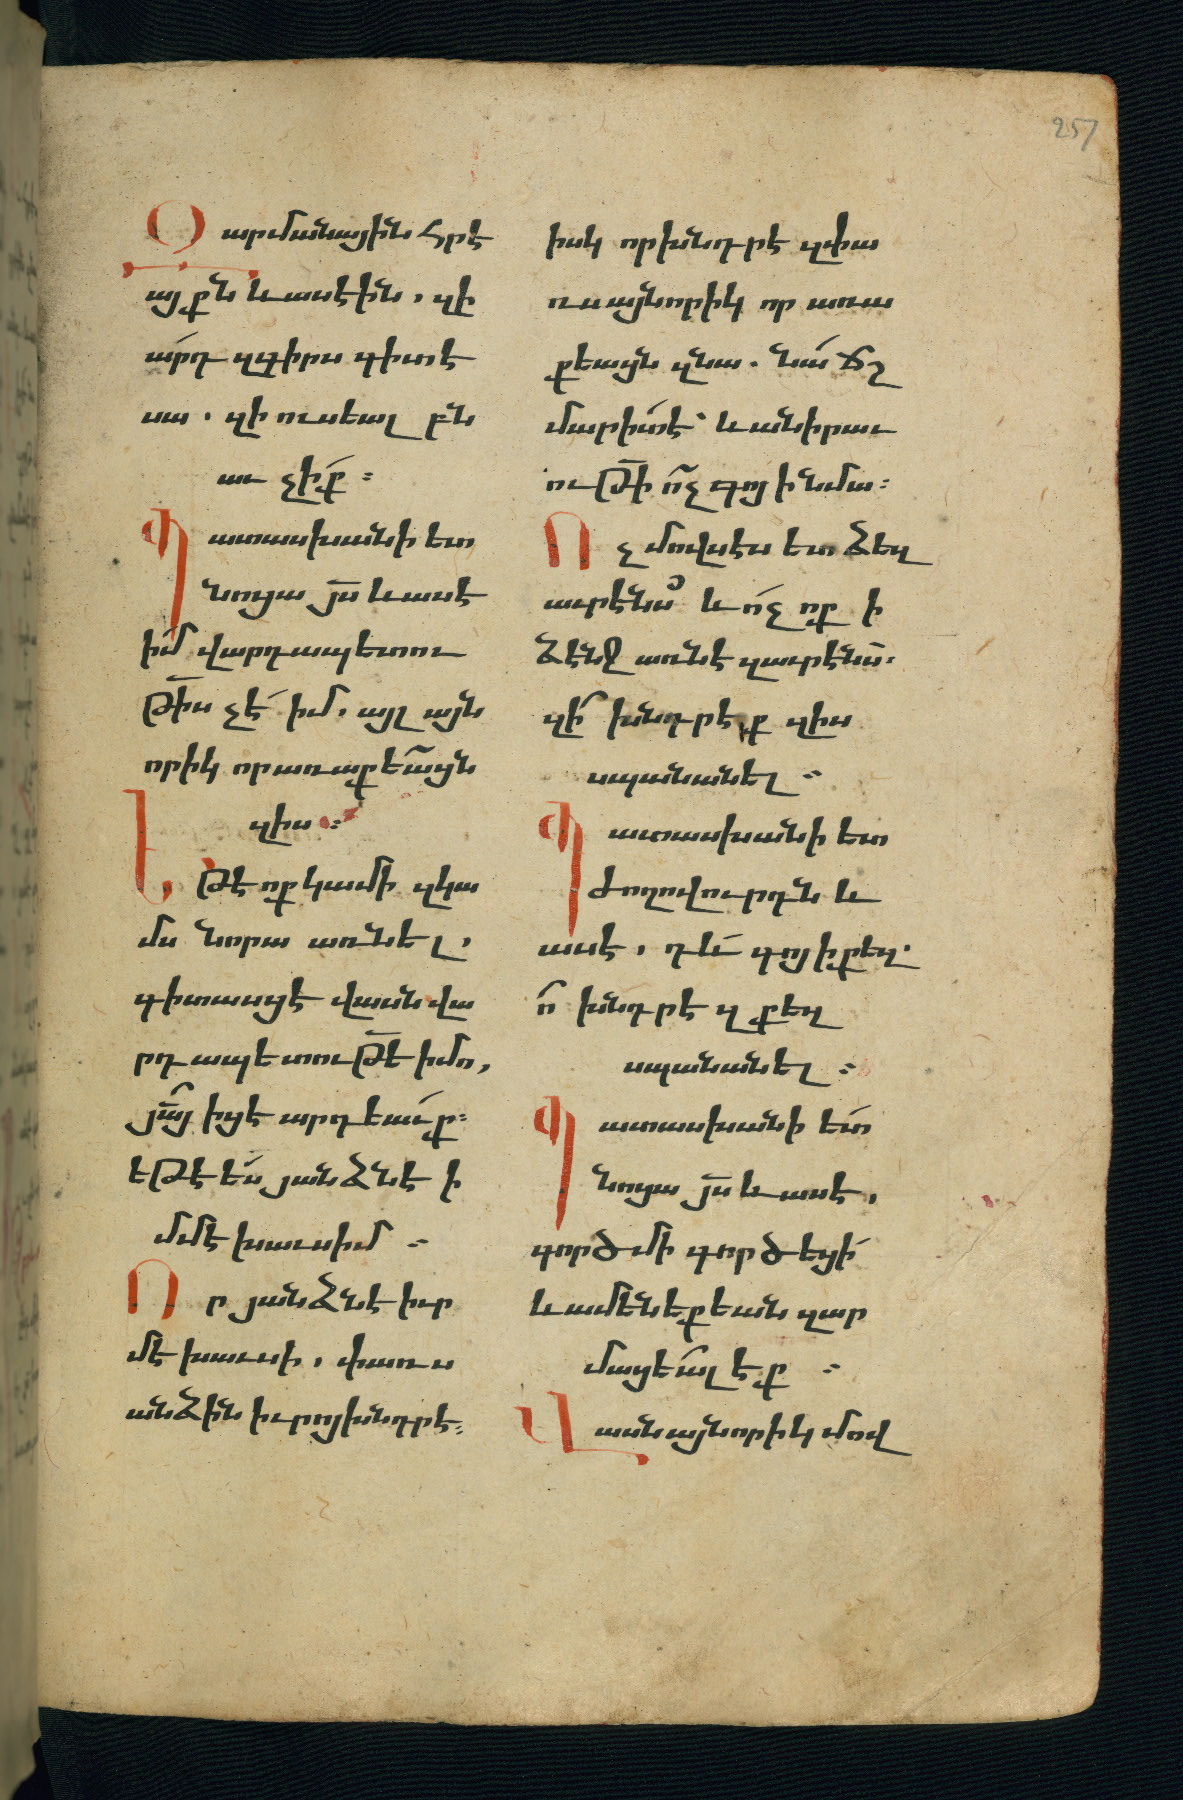 257
Զարմանային հրէ
այքն և ասէին, զի
ա՛րդ զգիրս գիտէ
սա, զի ուսեալ բն
աւ չի՛ք։
Պատասխանի ետ
նոցա յս և ասէ
իմ վարդապետու
թիս չէ՛ իմ, այլ այն
որիկ որ առաքեացն
զիս։
Եթէ ոք կամի զկա
մս նորա առնել,
գիտասցէ վասն վա
րդապետութէ իմո,
յայ իցէ արդեաւք։
եթէ ես յանձնէ ի
մմէ խաւսիմ։
Որ յանձնէ իւր
մէ խաւսի, փառս
անձին իւրոյ խնդրէ։
իսկ որ խնդրէ զփա
ռս այնորիկ որ առա
քեացն զնա. նա ճշ
մարիտ է՝ և անիրաւ
ութի ոչ գոյ ի նմա։
Ոչ մովսէս ետ ձեզ
աւրէնս՞ և ոչ ոք ի
ձէնջ առնէ զաւրէնս։
զի՞ խնդրէք զիս
սպանանել։
Պատասխանի ետ
ժողովուրդն և
ասէ, դև գոյ ի քեզ.
ո՞ խնդրէ զքեզ
սպանանել։
Պատասխանի ետ
նոցա յս և ասէ,
գործ մի գործեցի
և ամենեքեան զար
մացեալ էք։
Վասն այնորիկ մով